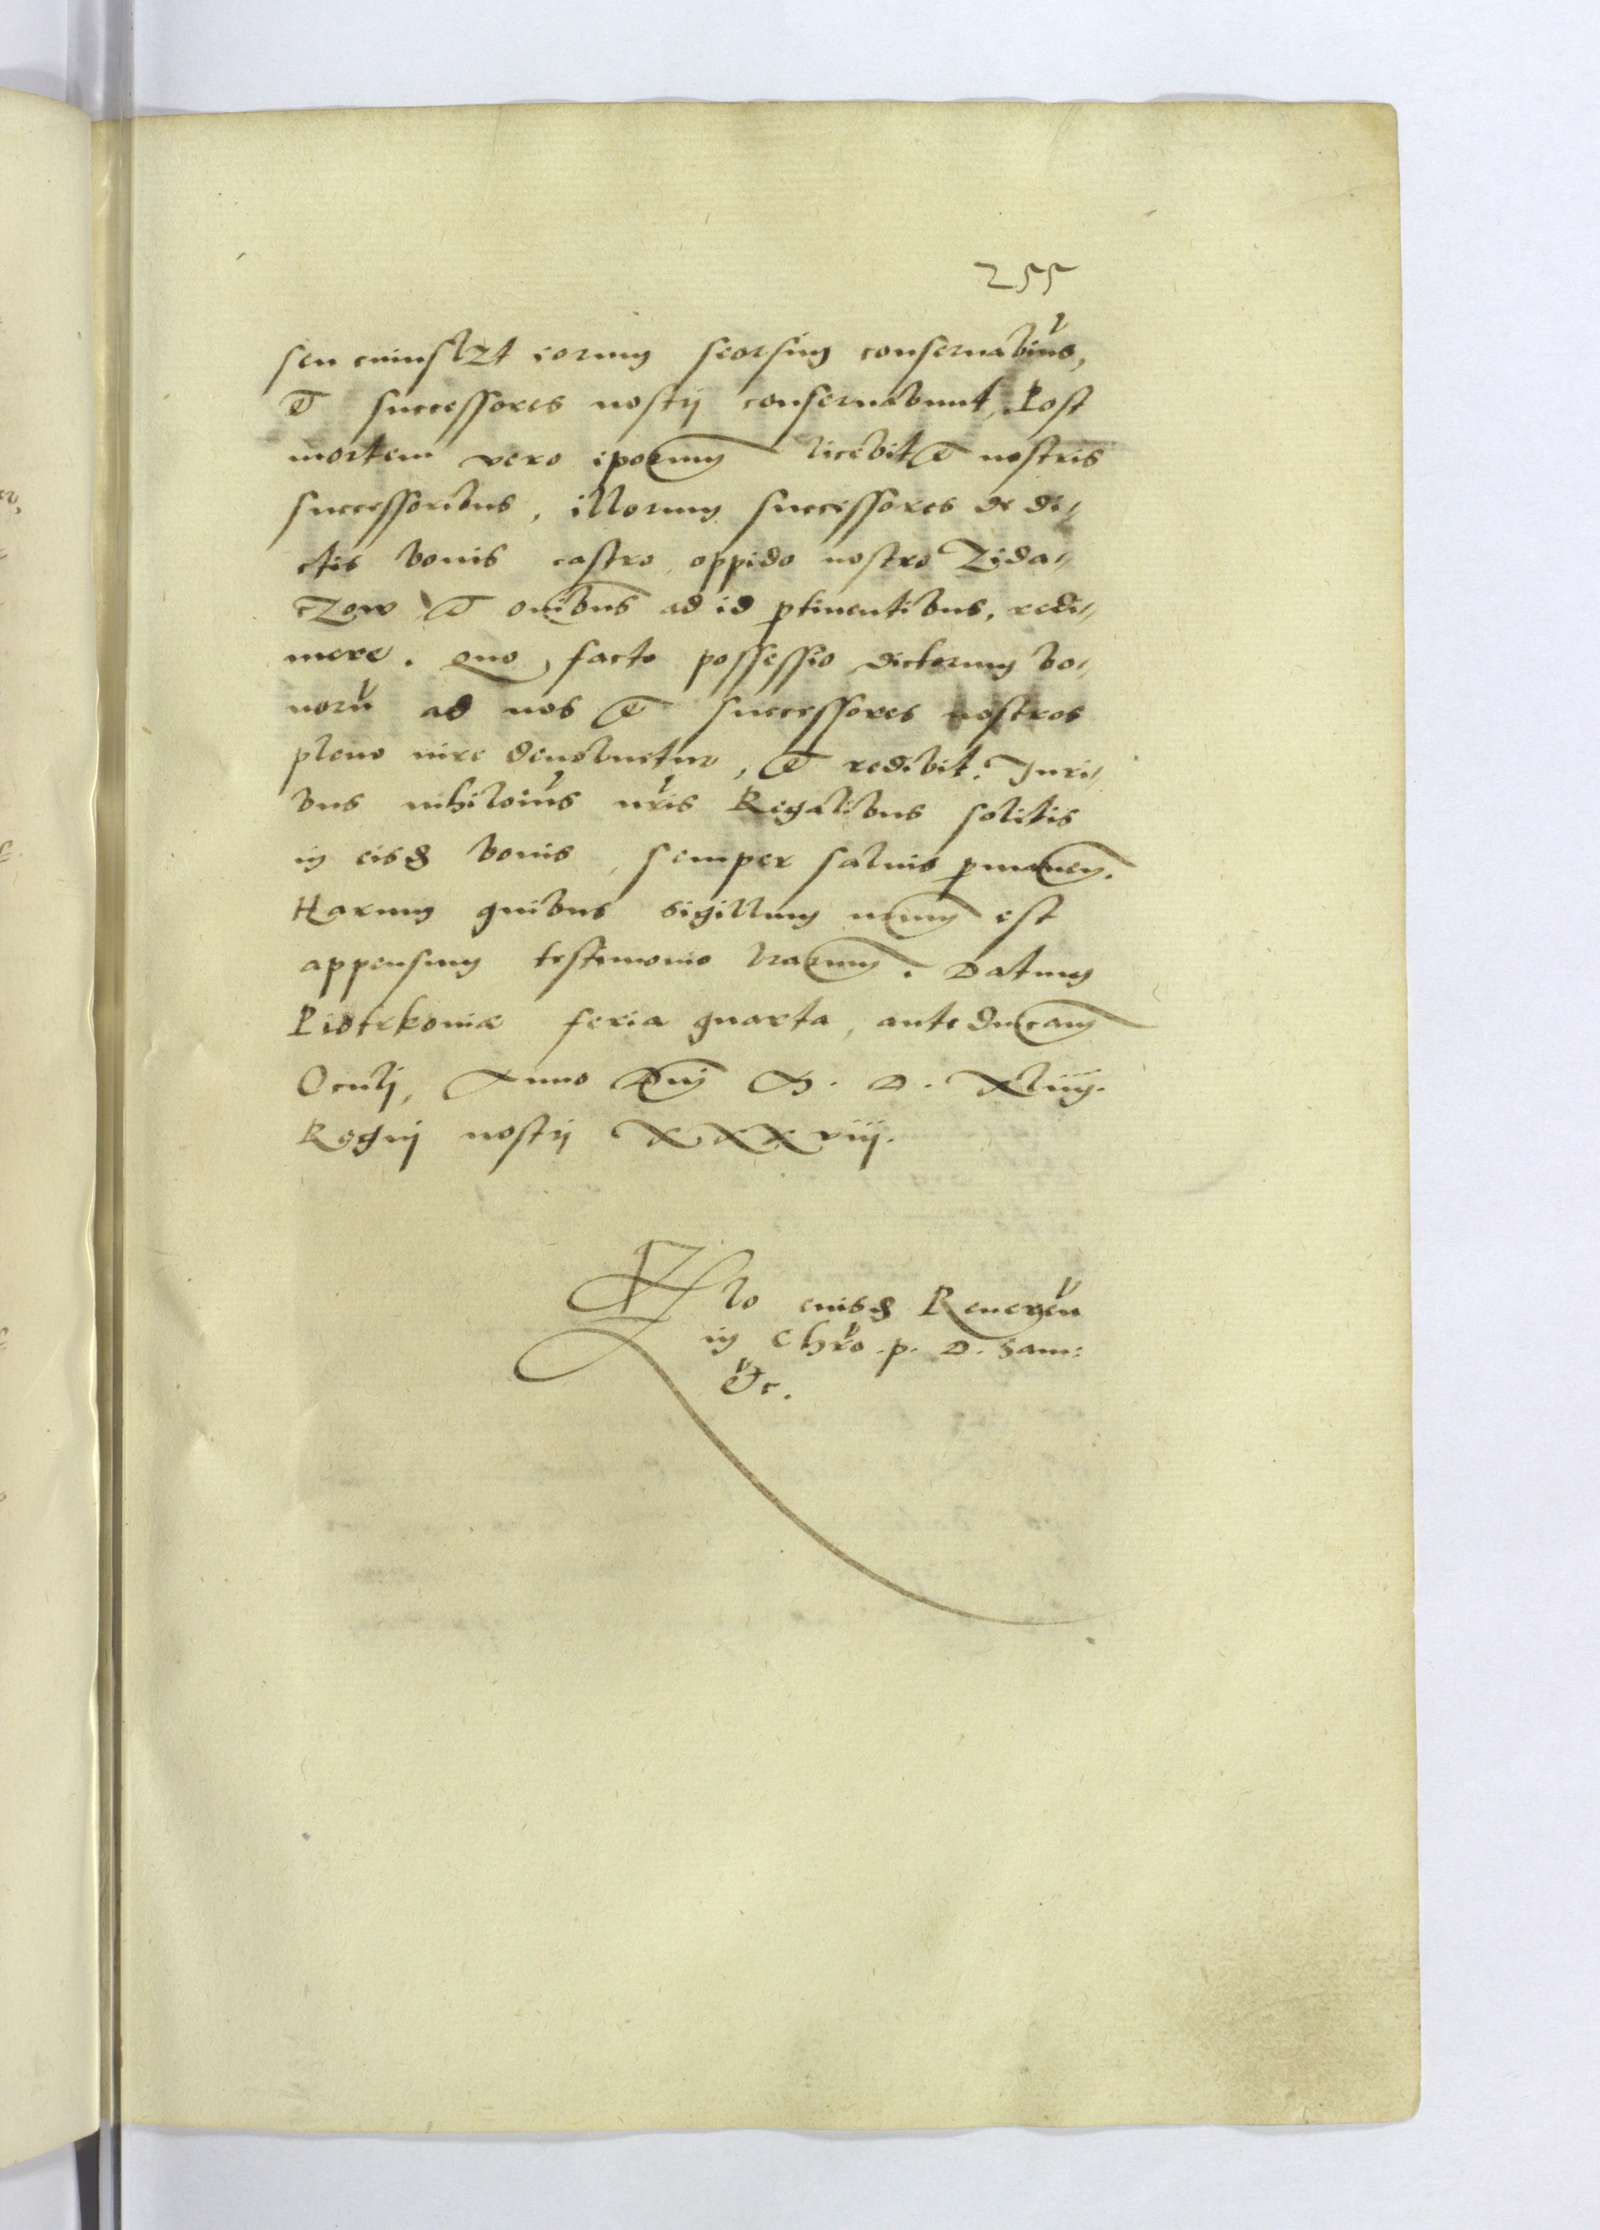 255
seu cuiuslzt eorum seorsim conseruabim̃us,
et successores nostrj conseruabunt, Post
mortem vero ip̃orum licebit et nostris
successoribus, illorum successores de di⸗
ctis bonis castro, oppido nostro Zida⸗
czow et om̃ibus ad id ꝑtinentibus, redi⸗
mere. Quo, facto possessio dictorum bo⸗
norũ ad nos et successores nostros
pleno iure deuoluetur, et redibit. Juri⸗
bus nihiloĩus nr̃is Regalibus solitis
in eisd bonis, semper saluis ꝑmanen.
Harum quibus sigillum nr̃um est
appensum testimonio lr̃arum. Datum
Piotrkouiæ feria quarta, ante dnicam
Oculj, Anno Dnj M. D. xliiij.
Regnj nostrj XXXviij.
Rlo eiusd Reuerẽn
in Chrõ. p. D. Sam:
etc.